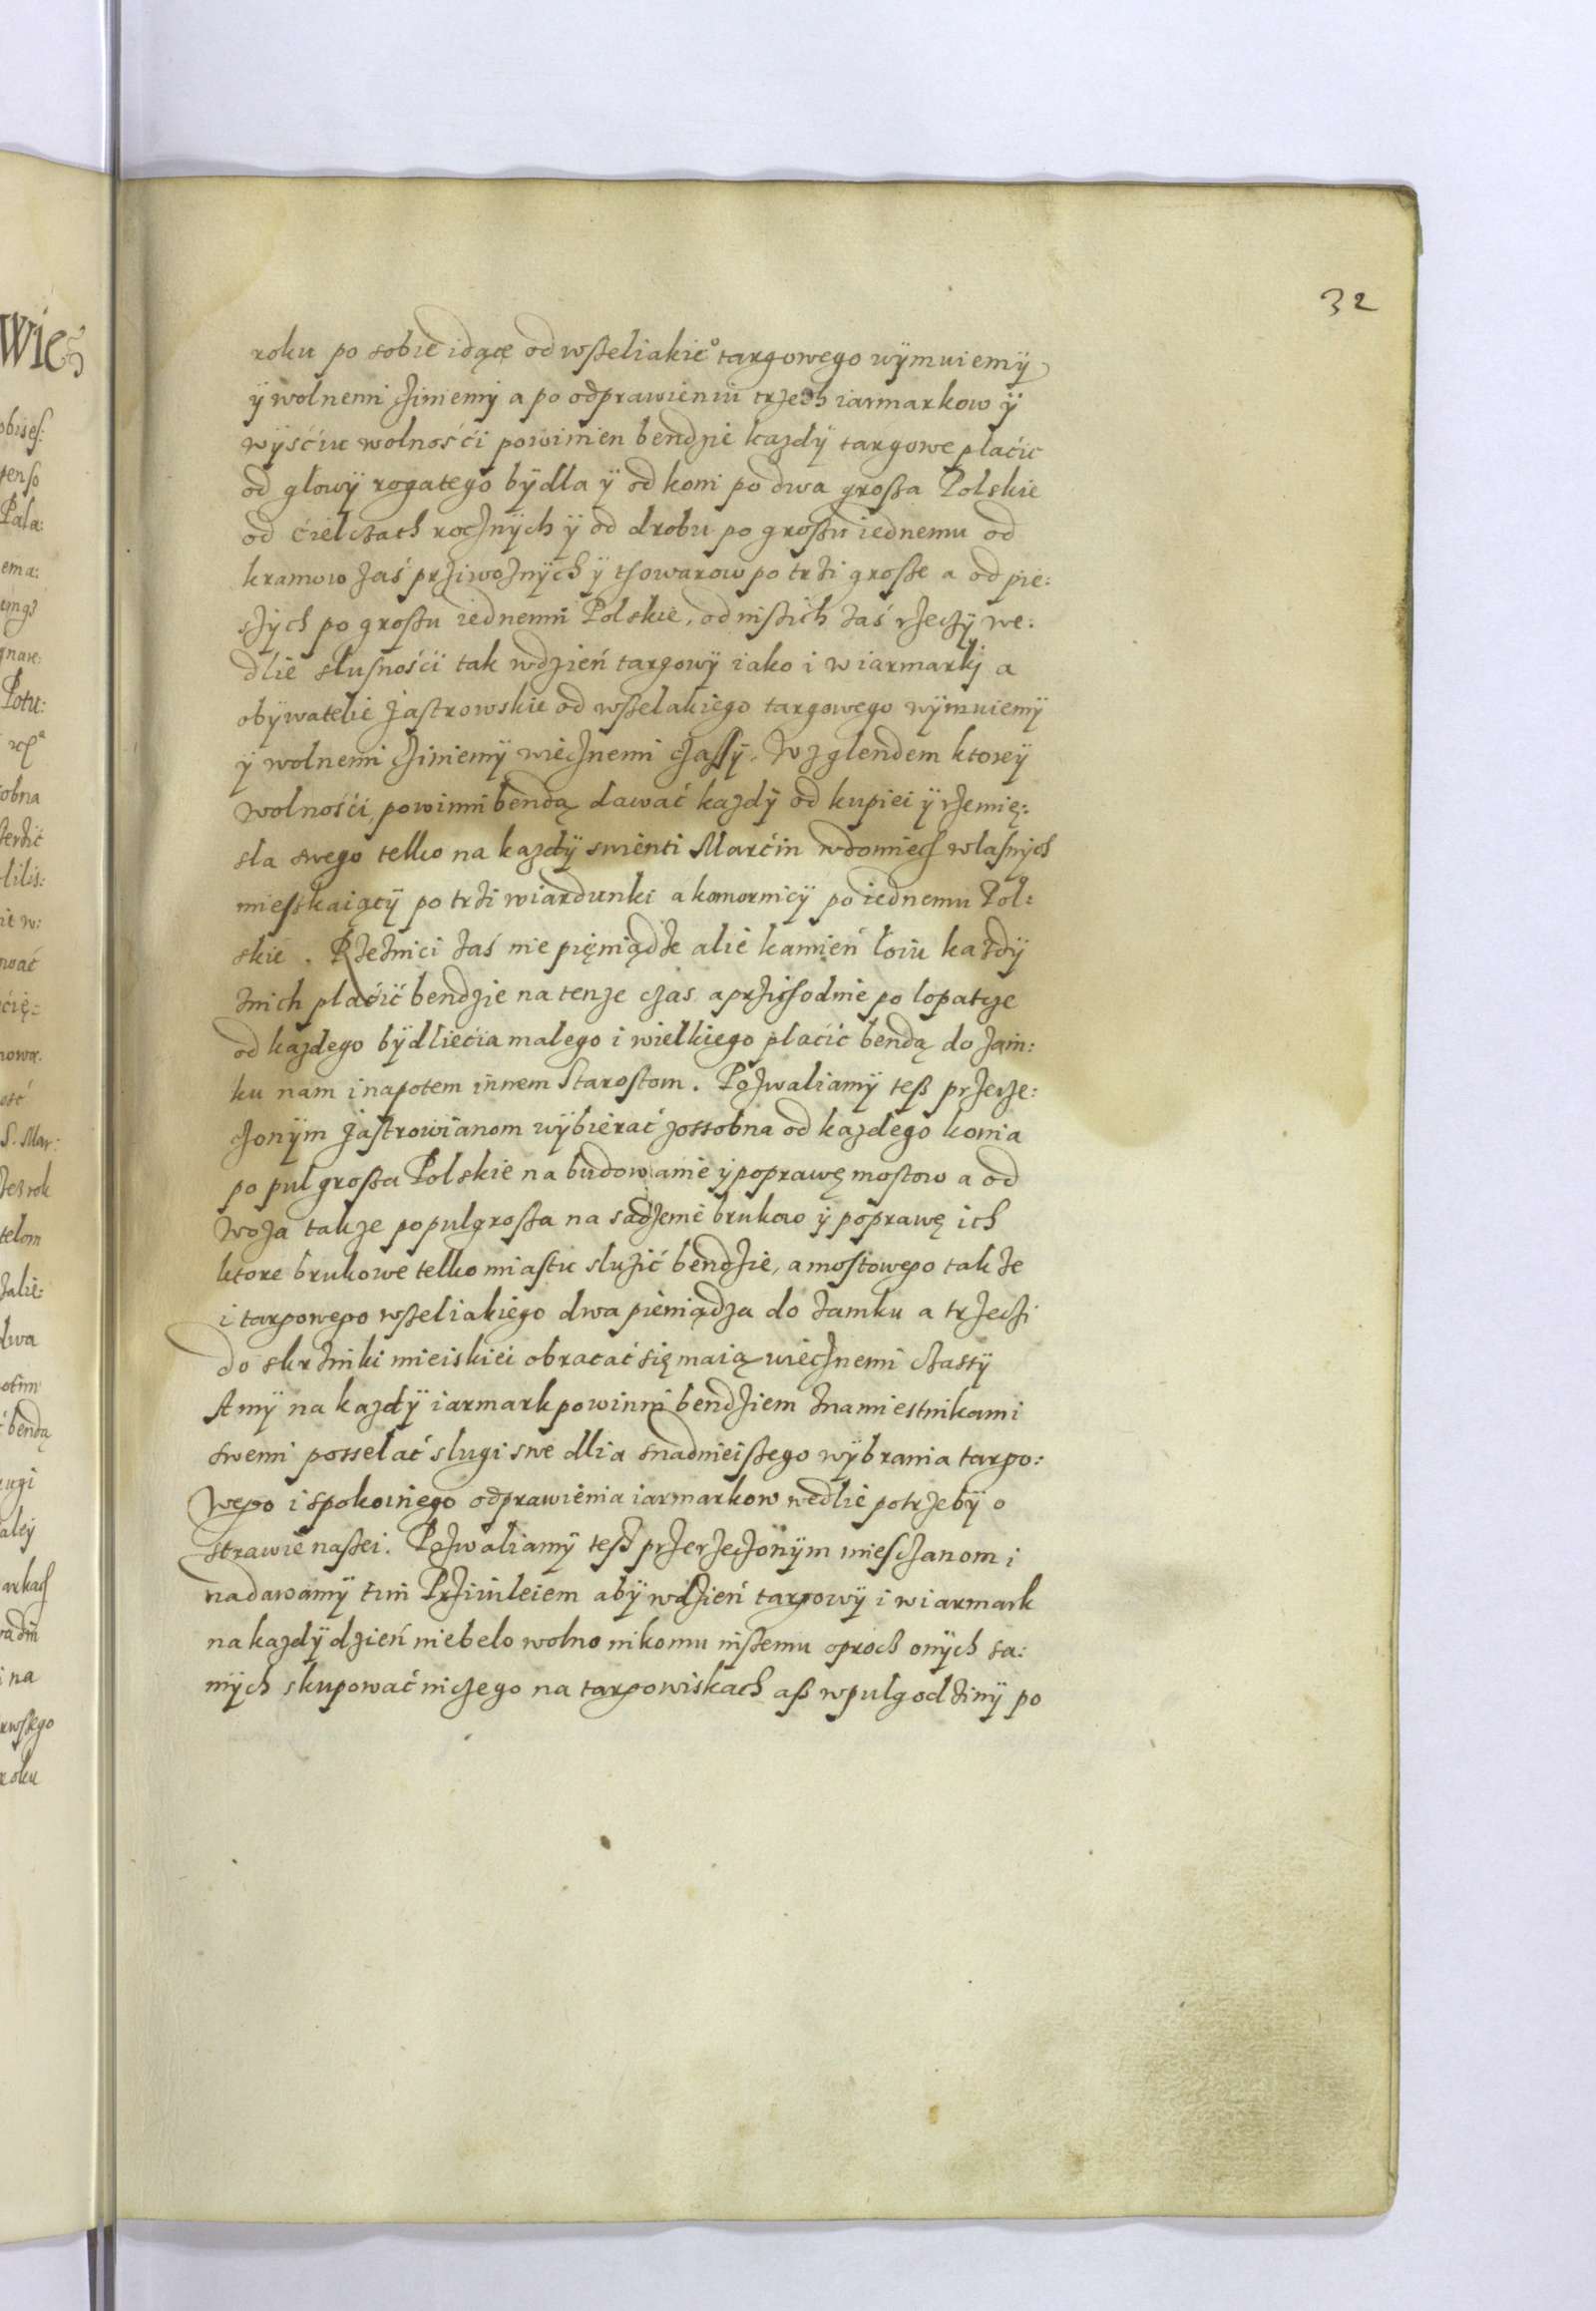 32
roku po sobie idące od wßeliakie° targowego wÿmuiemÿ
ÿ wolnemi cziniemÿ a po odprawieniu trzech iarmarkow ÿ
wÿsćiu wolnośći powinien bendzie kazdÿ targowe płaćic
od głowÿ rogatego bÿdla ÿ od koni po dwa großa Polskie
od ćielczach rocznÿch ÿ od drobu po großu iednemu od
kramow zaś prziwoznÿch ÿ towarow po trzi große a od pie:
szÿch po großu iednemu Polskie, od nißich zaś rzeczÿ we:
dlie słusnośći tak wdzień targowÿ iako i w iarmarkj a
obÿwatelie Jastrowskie od wßelakiego targowego wÿmuiemÿ
ÿ wolnemi cziniemÿ wiecznemi czassÿ. Wzglendem ktoreÿ
wolnośći, powinni bendą dawać kazdÿ od kupiei ÿ rzemię:
sła swego telko na kazdÿ swienti Marćin wdomiech własnÿch
mieskaiącÿ po trzi wiardunki a komornicÿ po iednemu Pol:
skie. Rzeznici zaś nie pięniądze alie kamień łoiu kazdÿ
znich płaćić bendzie na tenze czas a przichodnie po lopatcze
od kazdego bÿdliećia małego i wielkiego płacic bendą do zam:
ku nam i napotem innem Starostom. Pozwaliamÿ teß przerze:
czonÿm Jastrowianom wÿbierać zossobna od kazdego konia
po pul großa Polskie na budowanie ÿ poprawę mostow a od
woza takze po pulgroßa na sadzenie brukow ÿ poprawę ich
ktore brukowe telko miastu słuzić bendzie, a mostowego takze
i targowego wßeliakiego dwa pieniądza do zamku a trzeczi
do skrzinki mieiskiei obracać się maią wiecznemi czassÿ
A mÿ na kazdÿ iarmark powinni bendziem znamiestnikami
swemi posselać slugi swe dlia snadnieißego wÿbrania targo:
wego i spokoinego odprawienia iarmarkow wedlie potrzebÿ o
strawie naßei. Pozwaliamÿ teß przerzeczonÿm miesczanom i
nadawamÿ tim Prziuileiem abÿ wdzień targowÿ i w iarmark
na kazdÿ dzień niebelo wolno nikomu nißemu oproch onÿch sa:
mÿch skupować niczego na targowiskach aß wpulgodzinÿ po